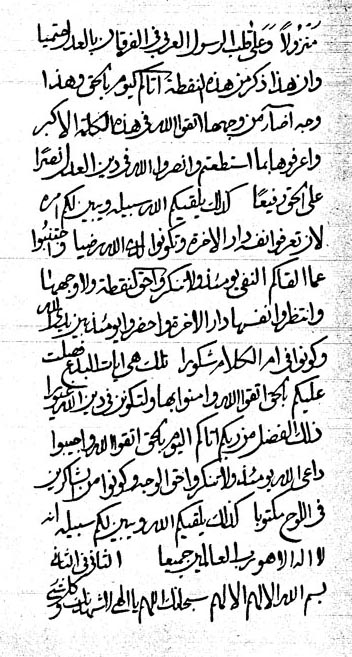 منزولا وعلى قلب الرسول العربي في الفرقان بالعدل حتميا
وان هذا ذكر من هذه النقطة اتاكم اليوم بالحق وهذا
وجه اضآء من وجهها اتقوا الله في هذه الكلمة الاكبر
واعرفوها بما استطعتم وانصروا الله في دين العدل نصرا
على الحق رفيعا كذلك يلقيكم الله سبيله ويبين لكم امره
لان تعرفوا نفسه دار الاخرة وتكونوا لدى الله رضيا واجتنبوا
عما القاكم النفي يومئذ ولا تنكروا حق النقطة ولا وجهها
وانتظروا نفسها دار الاخرة واحضروا يومئذ بين يدي الله
وكونوا في امر الكلام شكورا تلك هي ايات البدا نزلت
عليكم بالحق اتقوا الله وامنوا بها ولتكونن في دين الله
ذلك الفضل من ربكم اتاكم اليوم بالحق اتقوا الله واجيبوا
داعي الله يومئذ ولا تنكروا حق الوجه وكونوا من الشاكرين
في اللوح مكتوبا كذلك يلقيكم الله ويبين لكم سبيله انه
لا اله الا هو رب العالمين جميعا الثاني في الثالثة
بسم الله الالهم الالهم سبحانك اللهم يا الهي لاشهدنك وكل شيء